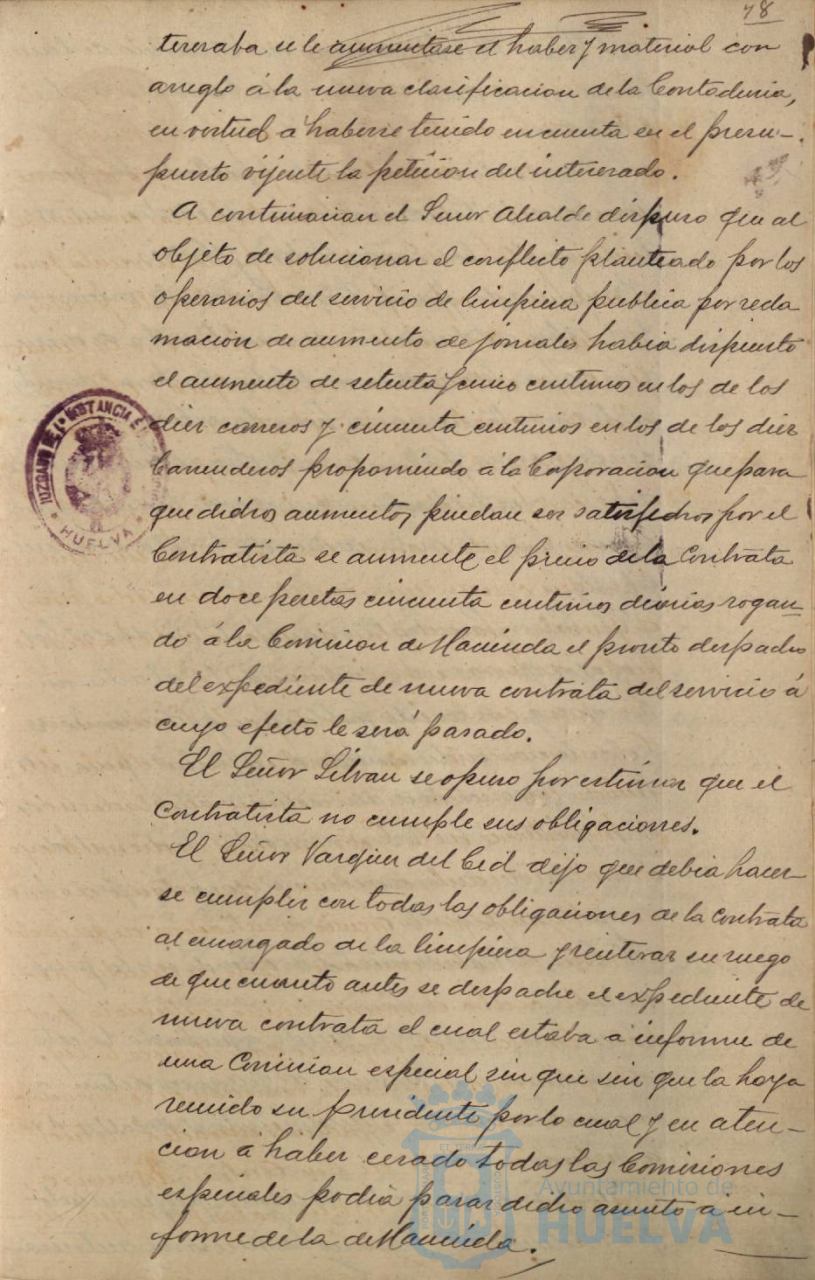 78
tereraba se le aumentase el haber y material con
arreglo á la nueva clasificacion de la Contaduria,
en virtud á haberse tenido en cuenta en el presu-
puesto vijente la peticion del interesado.
A continuacion el Señor Alcalde dispuso que al
objeto de solucionar el conflicto planteado por los
operarios del servicio de limpieza publica por recla
macion de aumento de jornales habia dispuesto
el aumento de setenta y cinco centimos en los de los
diez carreros y cincuenta centimos en los de los diez
barrenderos proponiendo á la Corporacion que para
que dichos aumentos puedan ser satisfechos por el
Contratista se aumente el precio de la Contrata
en doce pesetas cincuenta centimos diarias rogan-
do á la Comision de Hacienda el pronto despacho
del expediente de nueva contrata del servicio á
cuyo efecto le será pasado.
El Señor Silvan se opuso por estimar que el
Contratista no cumple sus obligaciones.
El Señor Vazquez del Cid dijo que debia hacer-
se cumplir con todas las obligaciones de la contrata
al encargado de la limpieza y reiterar su ruego
de que cuanto antes se despache el expediente de
nueva contrata el cual estaba a informe de
una Comision especial sin que sin que la haya
reunido su presidente por lo cual y en aten-
cion á haber cesado todas las Comisiones
especiales podia pasar dicho asunto a in-
forme de la de Hacienda.
JUZGADO DE 1ª INSTANCIA E
HUELVA
Ayuntamiento de
HUELVA